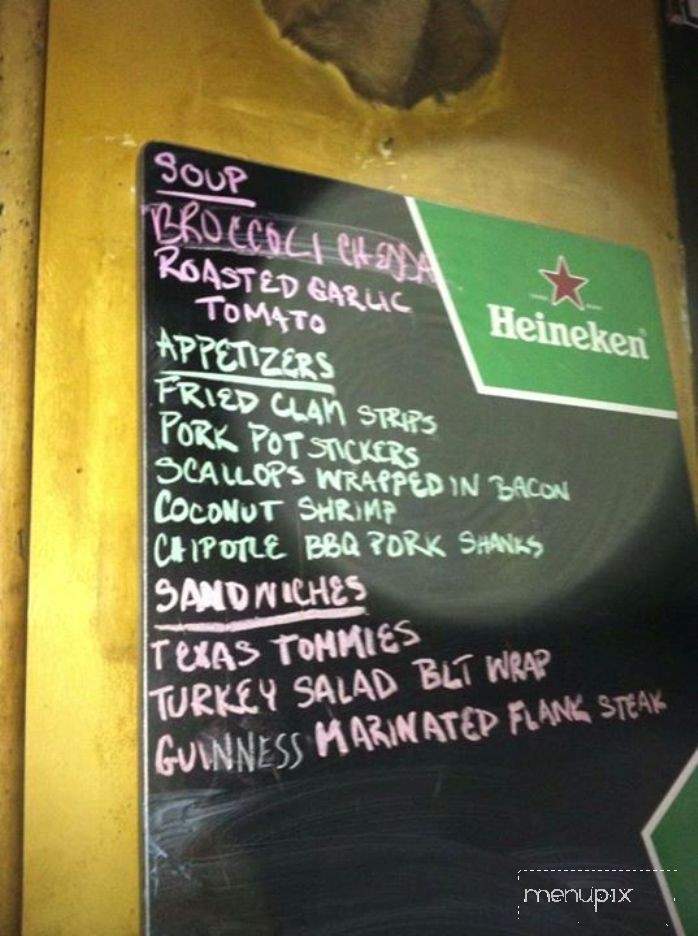 SOUP
BROCCOLI CHEDDA
ROASTED GARLIC
TOMATO
APPETIZERS
FRIED CLAM STRIPS
PORK POTSTICKERS
SCALLOPS WRAPPED IN BACON
COCONUT SHRIMP
CHIPOTLE BBQ PORK SHANKS
SANDWICHES
TEXAS TOMMIES
TURKEY SALAD BLT WRAP
GUINNESS MARINATED FLANK STEAK
Heineken
menupix